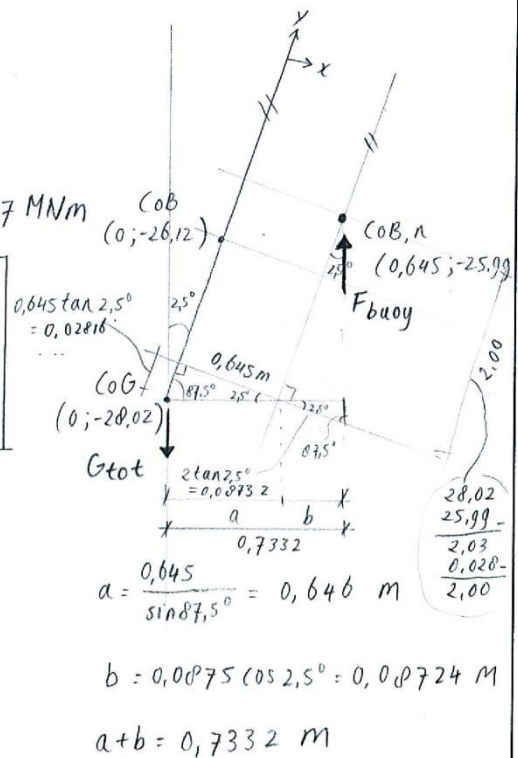 y
x
7 MNm
CoB
(0;-26,12)
CoB,n
(0,645;-25,99
2,5°
Fbuoy
0,645 tan 2,5°
= 0,02816
...
2,5°
2,00
0,645 m
CoG
(0;-28,02)
87,5°
2,5°
2,5°
87,5°
Gtot
2 tan 2,5°
= 0,08732
a
b
0,7332
28,02
25,99 -
2,03
0,028 -
2,00
a = 0,645 / sin 87,5° = 0,646 m
b = 0,0875 cos 2,5° = 0,08724 m
a+b = 0,7332 m